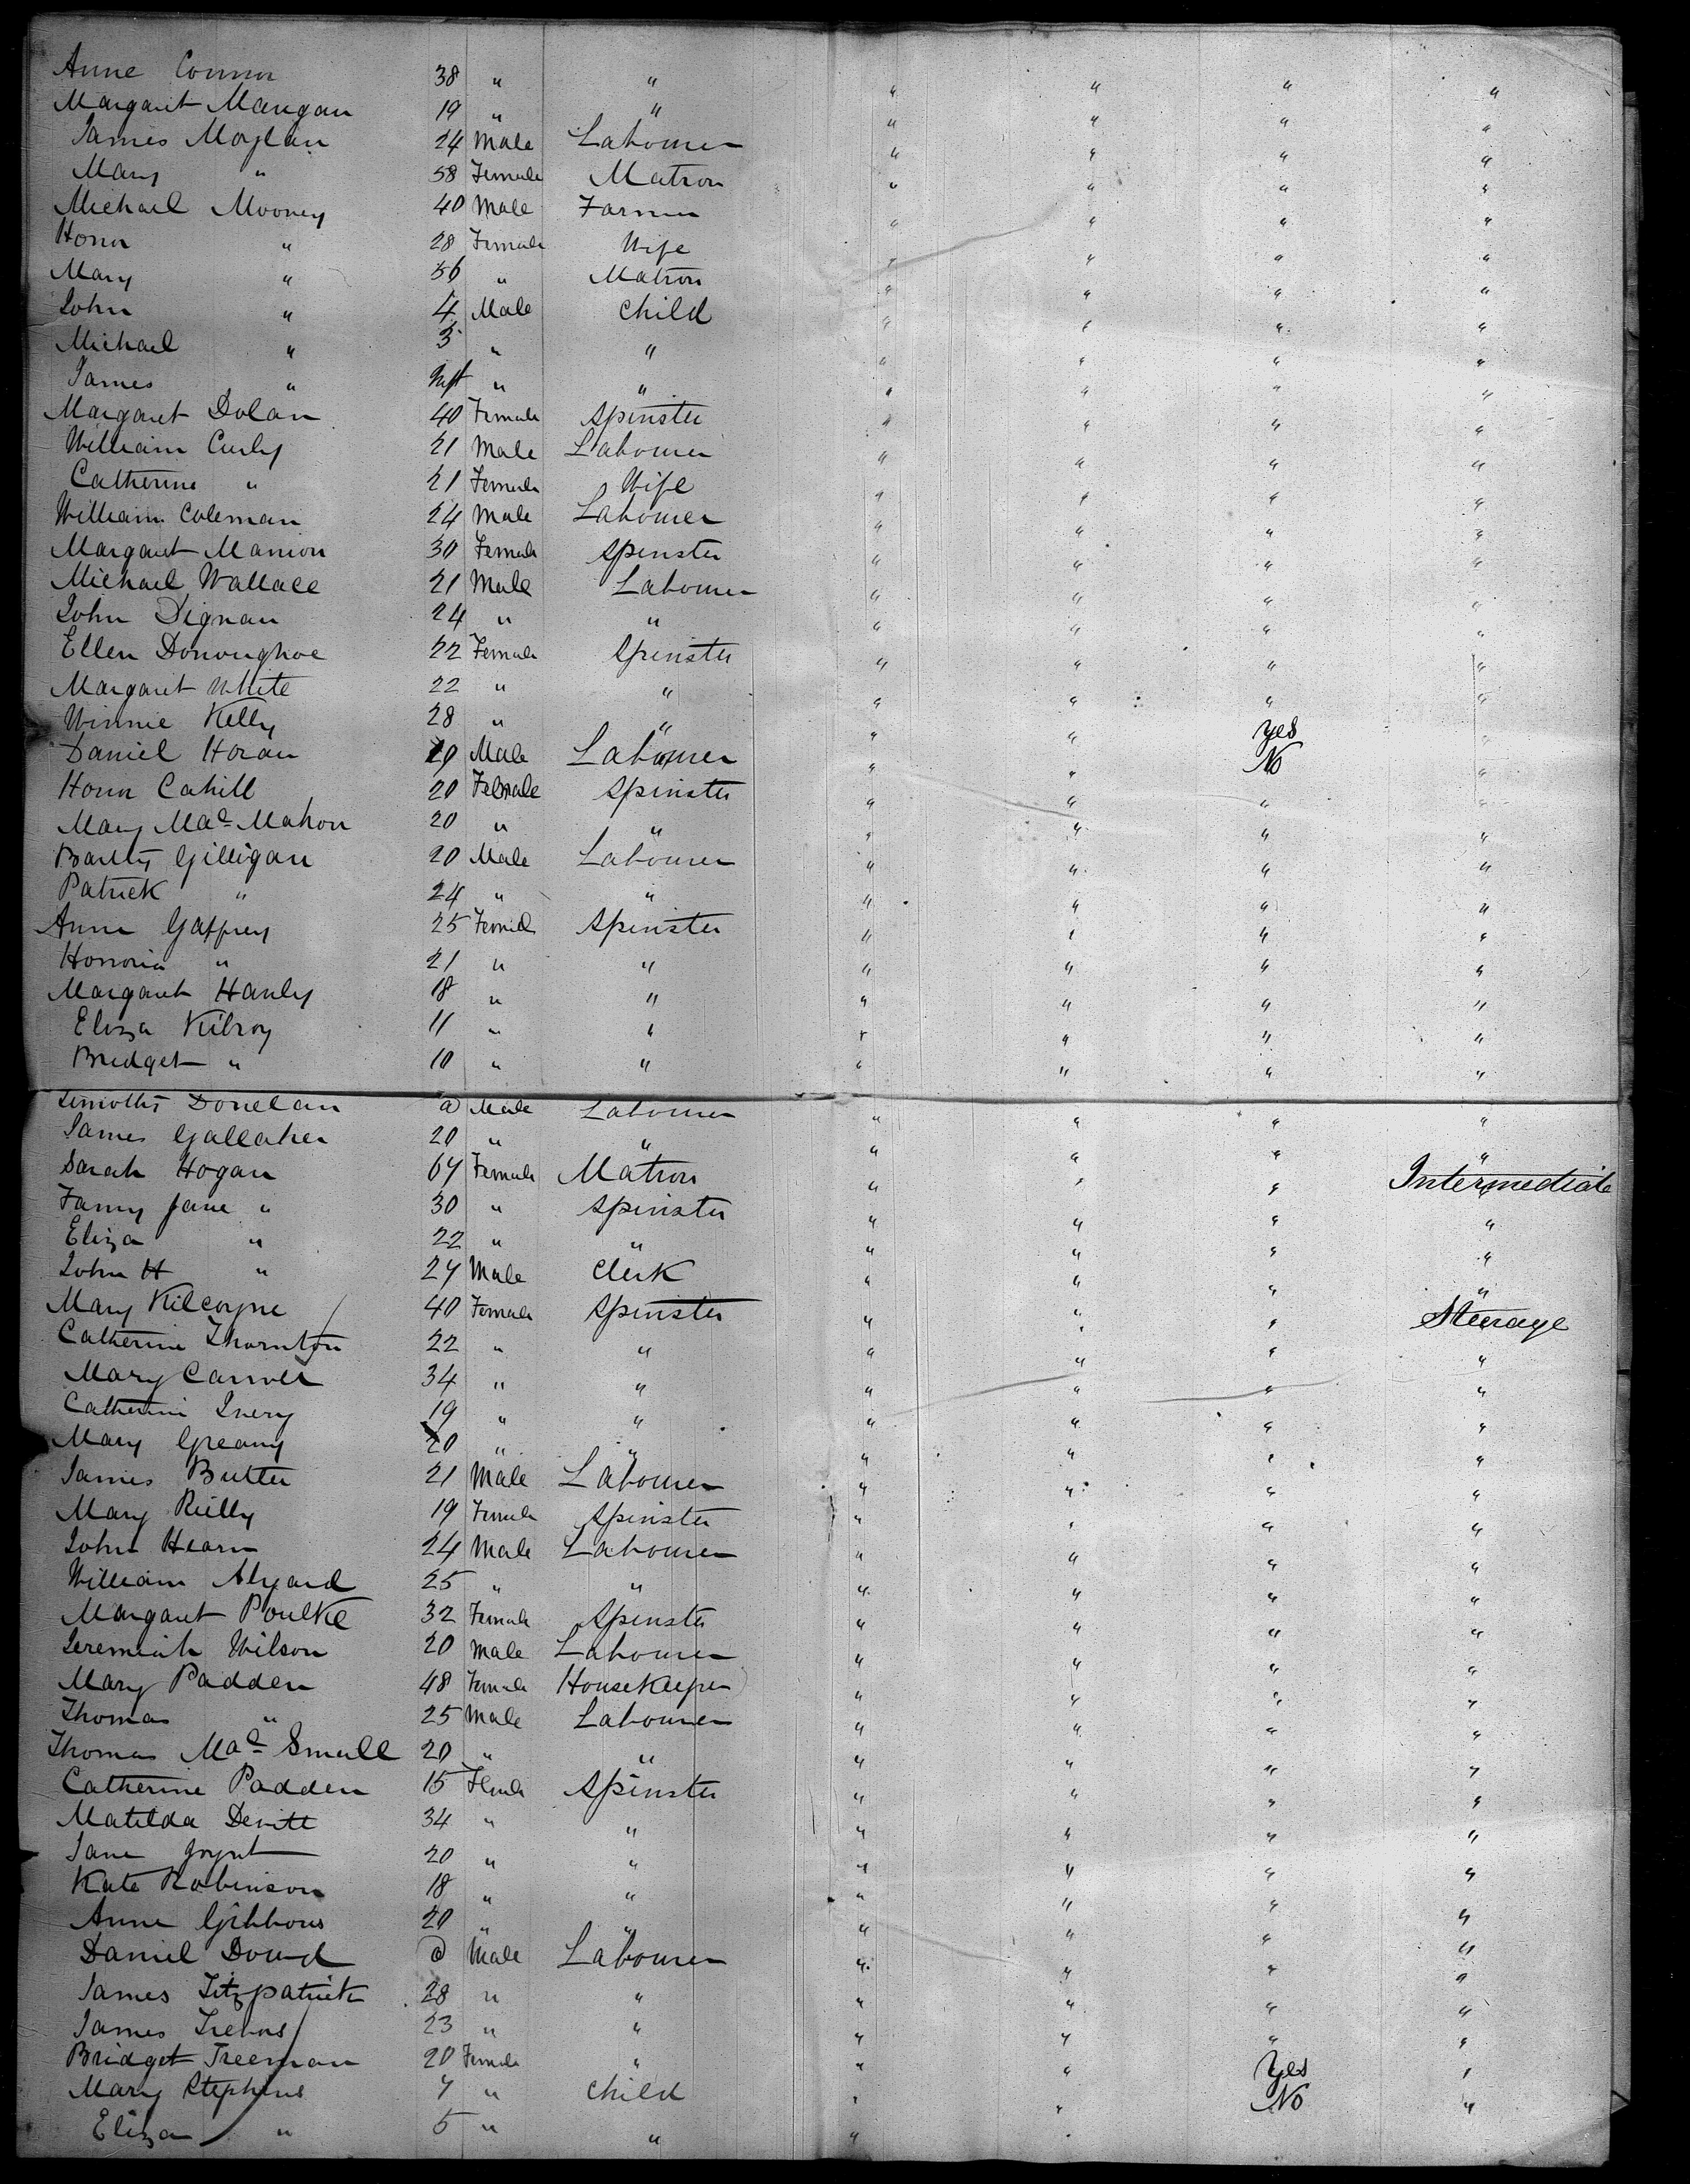 Anne Connor 38 " " " " " "
Margaret Mangan 19 " " " " " "
James Moylan 24 Male Labourer " " " "
Mary " 58 Female Matron " " " "
Michael Mooney 40 Male Farmer " " " "
Honor " 28 Female Wife " " " "
Mary " 56 " Matron " " " "
John " 4 Male Child " " " "
Michael " 3 " " " " " "
James " Inft " " " " " "
Margaret Dolan 40 Female Spinster " " " "
William Curly 21 Male Labourer " " " "
Catherine " 21 Female Wife " " " "
William Coleman 24 Male Labourer " " " "
Margaret Manion 30 Female Spinster " " " "
Michael Wallace 21 Male Labourer " " " "
John Dignan 24 " " " " " "
Ellen Donoughoe 22 Female Spinster " " " "
Margaret White 22 " " " " " "
Winnie Kelly 28 " " " " Yes "
Daniel Horan 19 Male Labourer " " No "
Honor Cahill 20 Female Spinster " " " "
Mary Mac Mahon 20 " " " " " "
Bartly Gilligan 20 Male Labourer " " " "
Patrick " 24 " " " " " "
Anne Gaffney 25 Female Spinster " " " "
Honoria " 21 " " " " " "
Margaret Hanly 18 " " " " " "
Eliza Kilroy 11 " " " " " "
Bridget " 10 " " " " " "
Timothy Donelan a Male Labourer " " " "
James Gallaher 20 " " " " " "
Sarah Hogan 64 Female Matron " " " Intermediate
Fanny Jane " 30 " Spinster " " " "
Eliza " 22 " " " " " "
John H " 24 Male Clerk " " " "
Mary Kilcoyne 40 Female Spinster " " " Steerage
Catherine Thornton 22 " " " " " "
Mary Carroll 34 " " " " " "
Catherine Ivery 19 " " " " " "
Mary Greany 20 " " " " " "
James Butler 21 Male Labourer " " " "
Mary Reilly 19 Female Spinster " " " "
John Hearn 24 Male Labourer " " " "
William Alyard 25 " " " " " "
Margaret Poulke 32 Female Spinster " " " "
Jeremiah Wilson 20 Male Labourer " " " "
Mary Padden 48 Female Housekeeper " " " "
Thomas " 25 Male Labourer " " " "
Thomas Mac Small 20 " " " " " "
Catherine Padden 15 Female Spinster " " " "
Matilda Devitt 34 " " " " " "
Jane Joynt 20 " " " " " "
Kate Robinson 18 " " " " " "
Anne Gibbons 20 " " " " " "
Daniel Dowd a Male Labourer " " " "
James Fitzpatrick 28 " " " " " "
James 23 " " " " " "
Bridget Freeman 20 Female " " " Yes "
Mary Stephens 7 " Child " " No "
Eliza " 5 " " " "